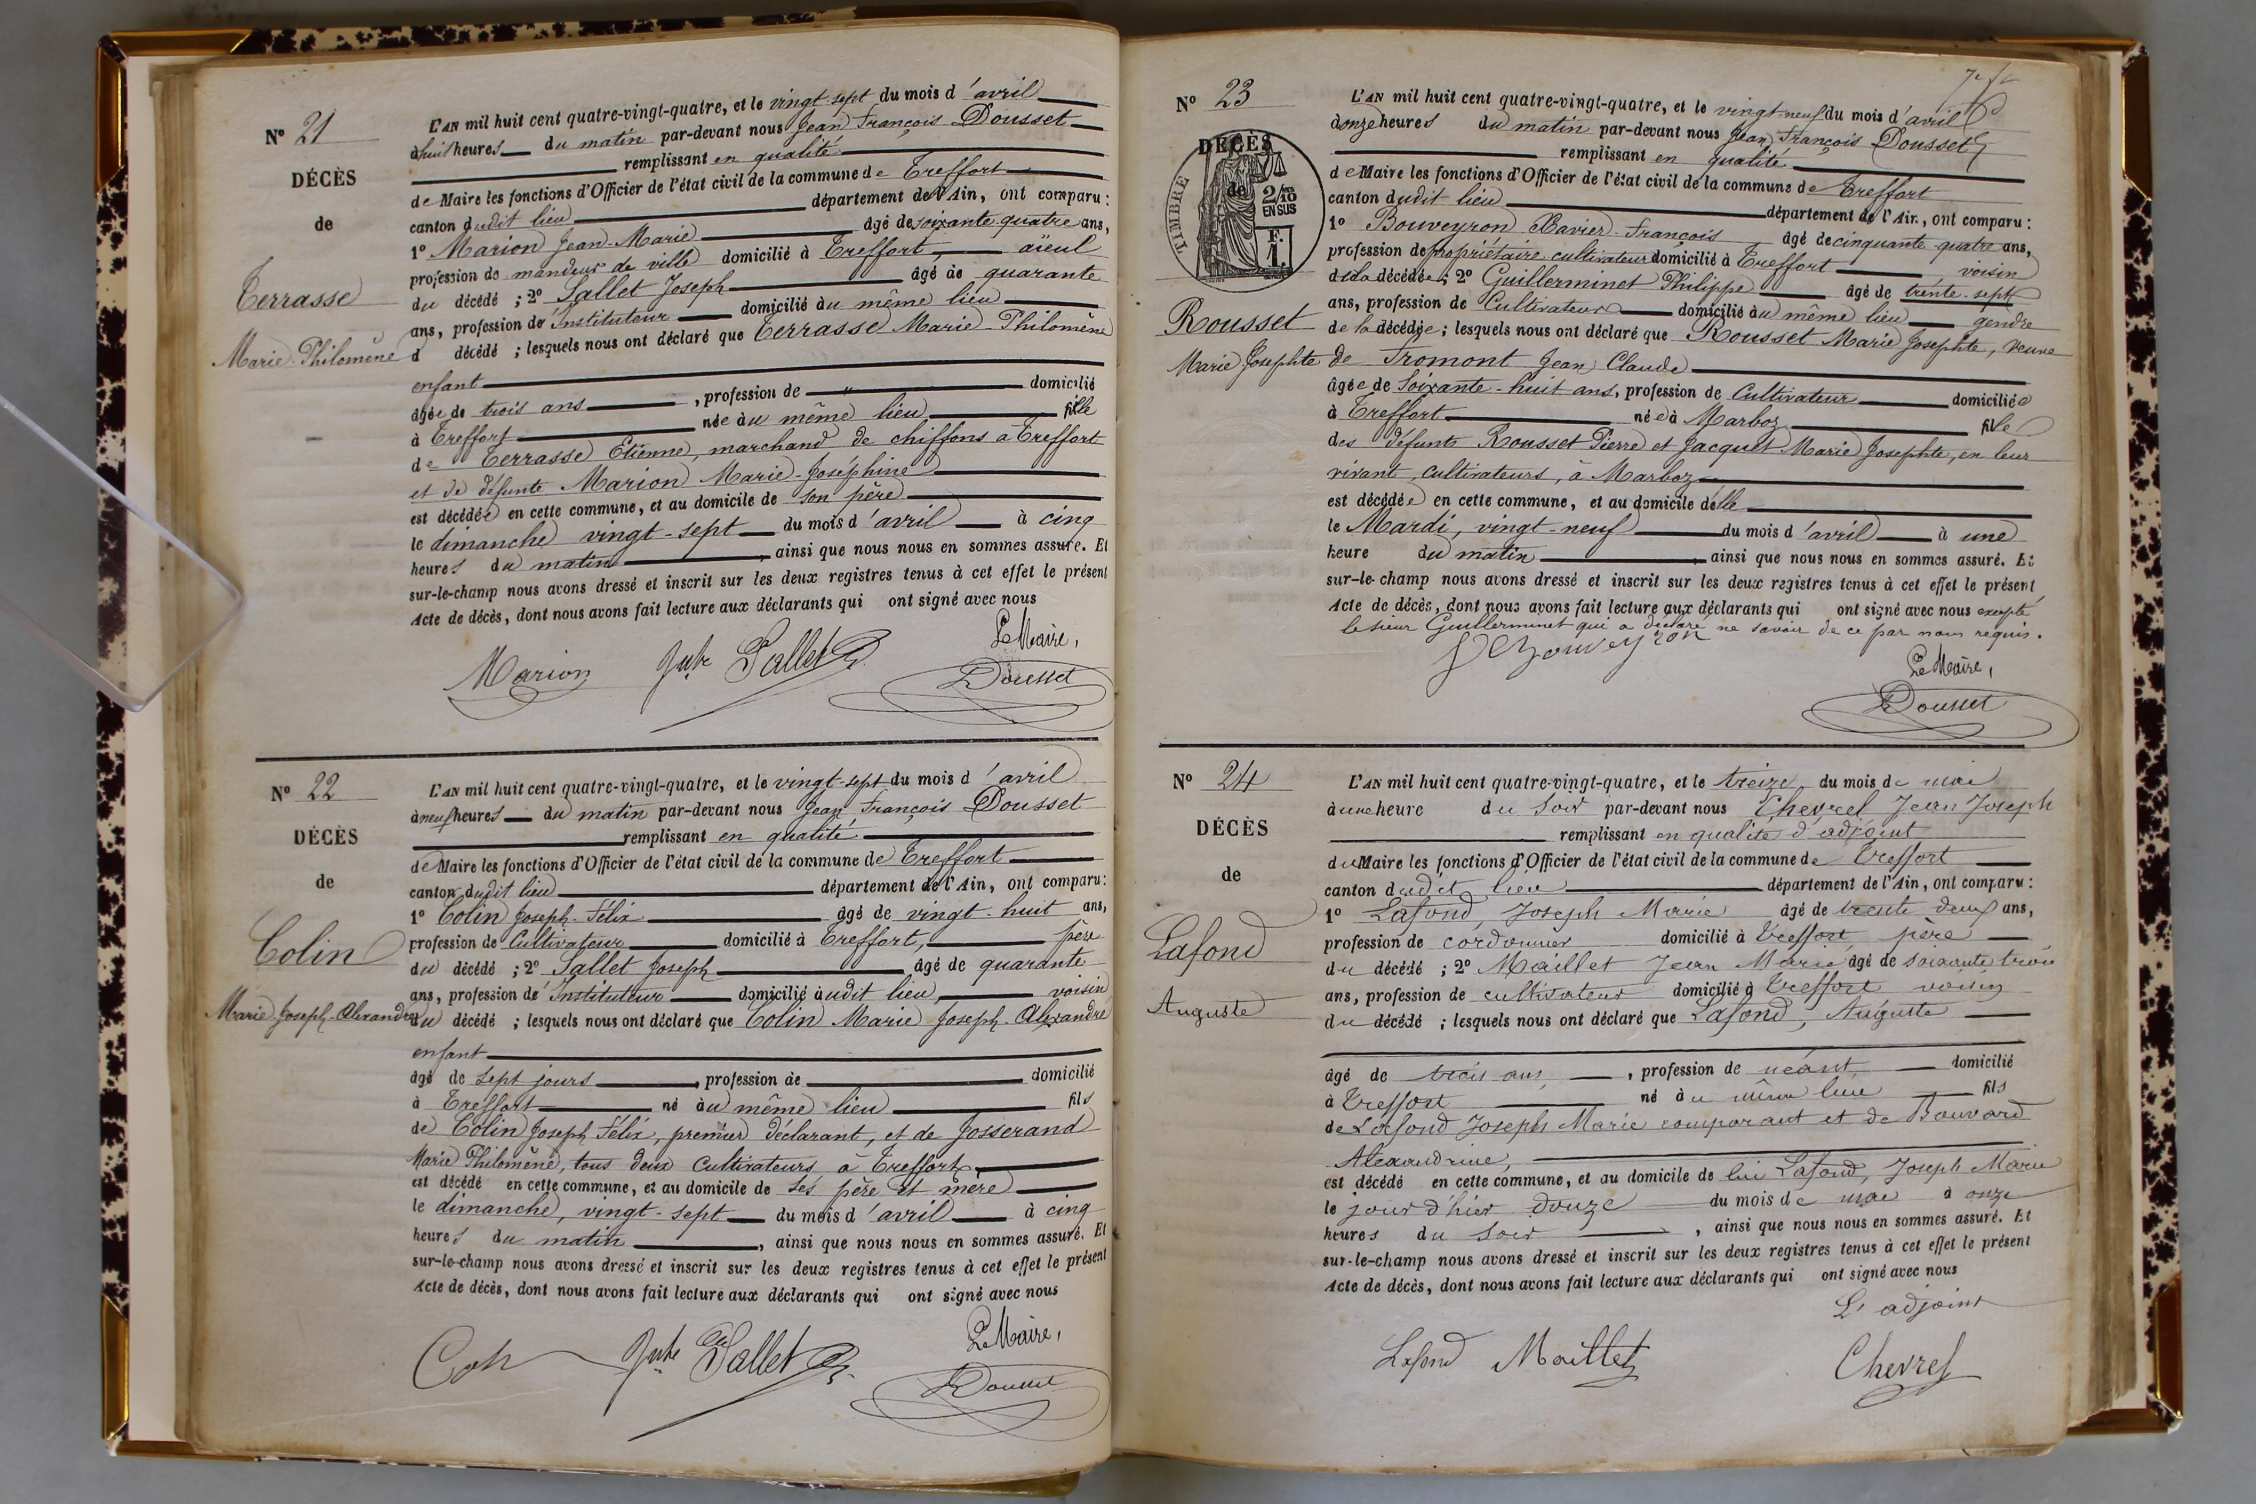 N° 21
DÉCÈS
de
Terrasse
Marie-Philomène
L'AN mil huit cent quatre-vingt-quatre, et le vingt-sept du mois d'avril
à huit heures du matin par-devant nous Jean François Dousset
remplissant en qualité
de Maire les fonctions d'Officier de l'état civil de la commune de Treffort
canton dudit lieu département de l'Ain, ont comparu :
1° Marion Jean-Marie âgé de soixante-quatre ans,
profession de mandeur de ville domicilié à Treffort, aïeul
du décédé ; 2° Sallet Joseph âgé de quarante
ans, profession d'Instituteur domicilié au même lieu
d décédé ; lesquels nous ont déclaré que Terrasse Marie-Philomène
enfant
âgée de trois ans, profession de " domicilié
à Treffort née au même lieu fille
de Terrasse Etienne, marchand de chiffons à Treffort
et de défunte Marion Marie-Joséphine
est décédée en cette commune, et au domicile de son père
le dimanche vingt-sept du mois d'avril à cinq
heures du matin, ainsi que nous nous en sommes assuré. Et
sur-le-champ nous avons dressé et inscrit sur les deux registres tenus à cet effet le présent
Acte de décès, dont nous avons fait lecture aux déclarants qui ont signé avec nous
Le Maire,
Marion Sallet Dousset
N° 22
DÉCÈS
de
Colin
Marie-Joseph-Alexandre
L'AN mil huit cent quatre-vingt-quatre, et le vingt-sept du mois d'avril
à neuf heures du matin par-devant nous Jean François Dousset
remplissant en qualité
de Maire les fonctions d'Officier de l'état civil de la commune de Treffort
canton dudit lieu département de l'Ain, ont comparu :
1° Colin Joseph-Félix âgé de vingt-huit ans,
profession de Cultivateur domicilié à Treffort, père
du décédé ; 2° Sallet Joseph âgé de quarante
ans, profession d'Instituteur domicilié audit lieu, voisin
du décédé ; lesquels nous ont déclaré que Colin Marie Joseph-Alexandre
enfant
âgé de sept jours, profession de domicilié
à Treffort né au même lieu fils
de Colin Joseph Félix, premier déclarant, et de Josserand
Marie Philomène, tous deux cultivateurs à Treffort,
est décédé en cette commune, et au domicile de ses père et mère
le dimanche, vingt-sept du mois d'avril à cinq
heures du matin, ainsi que nous nous en sommes assuré. Et
sur-le-champ nous avons dressé et inscrit sur les deux registres tenus à cet effet le présent
Acte de décès, dont nous avons fait lecture aux déclarants qui ont signé avec nous
Le Maire,
Sallet Dousset
N° 23
DÉCÈS
de
TIMBRE
2/10
EN SUS
Rousset
Marie Josephte
L'AN mil huit cent quatre-vingt-quatre, et le vingt-neuf du mois d'avril
à onze heures du matin par-devant nous Jean François Dousset
remplissant en qualité
de Maire les fonctions d'Officier de l'état civil de la commune de Treffort
canton dudit lieu département de l'Ain, ont comparu :
1° Bouveyron Xavier-François âgé de cinquante-quatre ans,
profession de propriétaire cultivateur domicilié à Treffort voisin
de la décédée ; 2° Guillerminet Philippe âgé de trente-sept
ans, profession de Cultivateur domicilié au même lieu gendre
de la décédée ; lesquels nous ont déclaré que Rousset Marie Josephte, veuve
de Fromont Jean Claude
âgée de soixante-huit ans, profession de Cultivateur domiciliée
à Treffort née à Marboz fille
des défunts Rousset Pierre et Jacquet Marie Josephte, en leur
vivant, cultivateurs, à Marboz
est décédée en cette commune, et au domicile d'elle
le Mardi, vingt-neuf du mois d'avril à une
heure du matin, ainsi que nous nous en sommes assuré. Et
sur-le-champ nous avons dressé et inscrit sur les deux registres tenus à cet effet le présent
Acte de décès, dont nous avons fait lecture aux déclarants qui ont signé avec nous excepté
le sieur Guillerminet qui a déclaré ne savoir de ce par nous requis.
Bouveyron
Le Maire,
Dousset
N° 24
DÉCÈS
de
Lafond
Auguste
L'AN mil huit cent quatre-vingt-quatre, et le treize du mois de mai
à une heure du soir par-devant nous Chevrel Jean Joseph
remplissant en qualité d'adjoint
du Maire les fonctions d'Officier de l'état civil de la commune de Treffort
canton dudit lieu département de l'Ain, ont comparu :
1° Lafond, Joseph Marie âgé de trente deux ans,
profession de cordonnier domicilié à Treffort père
du décédé ; 2° Maillet Jean Marie âgé de soixante trois
ans, profession de cultivateur domicilié à Treffort voisin
du décédé ; lesquels nous ont déclaré que Lafond, Auguste
âgé de trois ans, profession de néant domicilié
à Treffort né au même lieu fils
de Lafond Joseph Marie comparant et de Bouvard
Alexandrine,
est décédé en cette commune, et au domicile de lui Lafond, Joseph Marie
le jour d'hier douze du mois de mai à onze
heures du soir, ainsi que nous nous en sommes assuré. Et
sur-le-champ nous avons dressé et inscrit sur les deux registres tenus à cet effet le présent
Acte de décès, dont nous avons fait lecture aux déclarants qui ont signé avec nous
L'adjoint
Lafond Maillet Chevrel